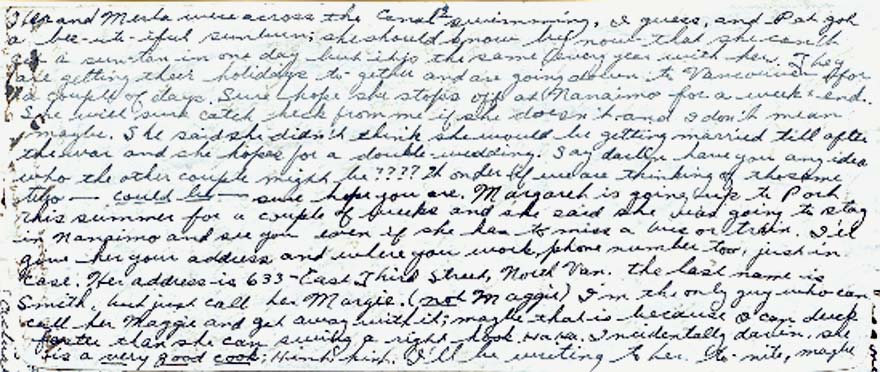 Her and Merla were across the canal swimming, I guess, and Pat got
a bee-ute-iful sunburn; she should know by now that she can't
get a sun-tan in one day but it's the same every year with her. They
are getting their holidays to-gether and are going down to Vancouver for
a couple of days. Sure hope she stops off at Nanaimo for a week-end.
She will sure catch heck from me if she doesn't and I don't mean
maybe. She said she didn't think she would be getting married till after
the war and she hopes for a double-wedding. Say darlin have you any idea
who the other couple might be???? I wonder if we are thinking of the same
two — could be — sure hope you are. Margaret is going up to Port
this summer for a couple of weeks and she said she was going to stay
in Nanaimo and see you even if she has to miss a bus or train. I'll
give her your address and where you work, phone number too, just in
case. Her address is 633-East Third Street, North Van. the last name is
Smith, but just call her Margie. (not Maggie) I'm the only guy who can
call her Maggie and get away with it; maybe that is because I can duck
faster than she can swing a right hook. Ha Ha. Incidentally darlin, she
is a very good cook; Hint hint. I'll be writing to her to-nite, maybe